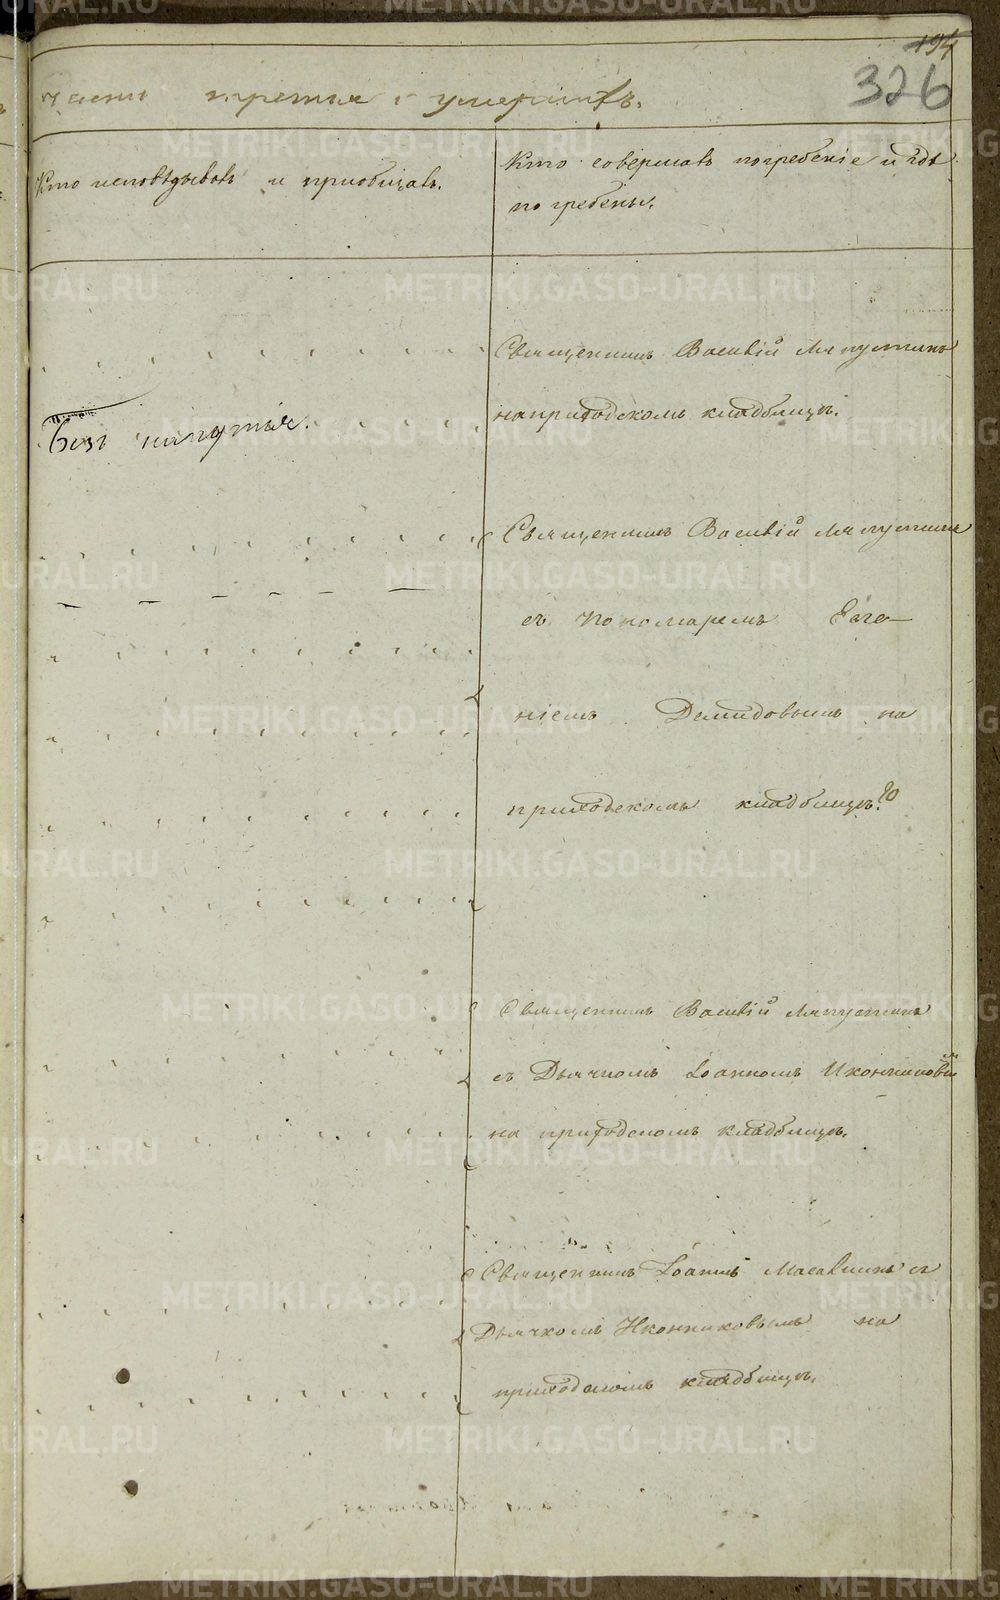 194
326
часть третья о умершихъ.
Кто исповѣдывалъ и приобщалъ.
Кто совершалъ погребеніе и гдѣ
погребены.
Священникъ Василій Ляпустинъ
на приходскомъ кладбищѣ.
Безъ напутія.
Священникъ Василій Ляпустинъ
съ пономаремъ Евге-
ніемъ Демидовымъ на
приходскомъ кладбищѣ.
Священникъ Василій Ляпустинъ
съ Дьячкомъ Іоанномъ Иконниковым
на приходскомъ кладбищѣ.
Священникъ Іоаннъ съ
Дьячкомъ Иконниковымъ на
приходскомъ кладбищѣ.
METRIKI.GASO-URAL.RU